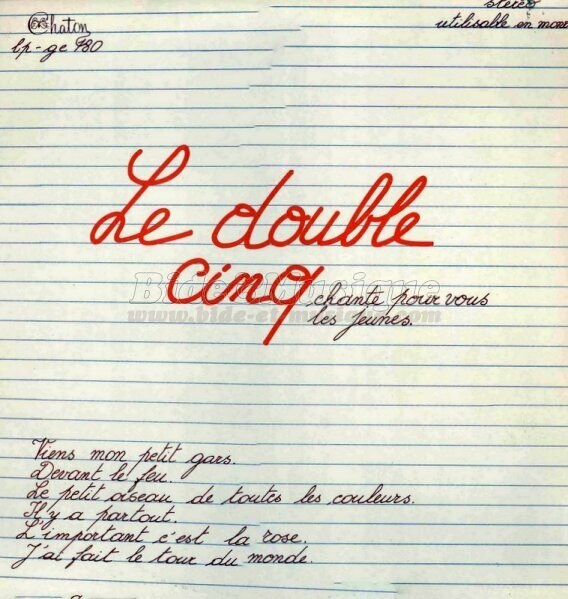 Chaton
lp-ge 980
stéréo
utilisable en mono
Le double
cinq chante pour vous
les jeunes.
Bide&Musique
www.bide-et-musique.com
Viens mon petit gars.
Devant le feu.
Le petit oiseau de toutes les couleurs.
Il y a partout.
L'important c'est la rose.
J'ai fait le tour du monde.